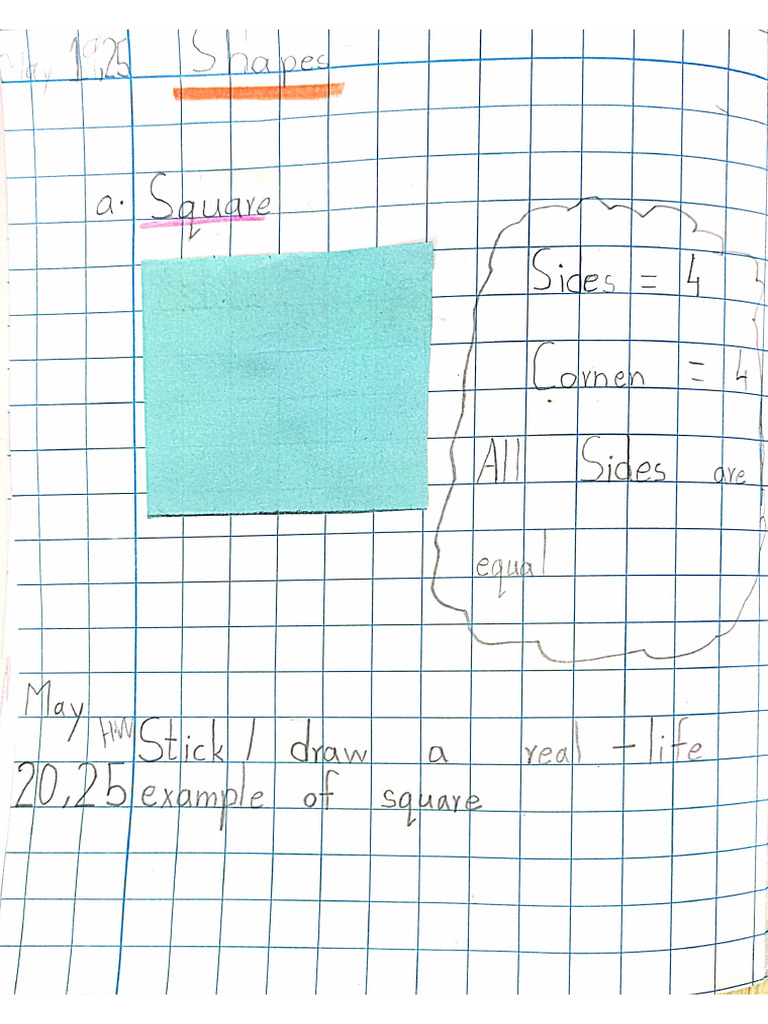 May 19,25 Shapes
a. Square
Sides = 4
Cornen = 4
All Sides are
equal
May
HW Stick / draw a real - life
20,25 example of square